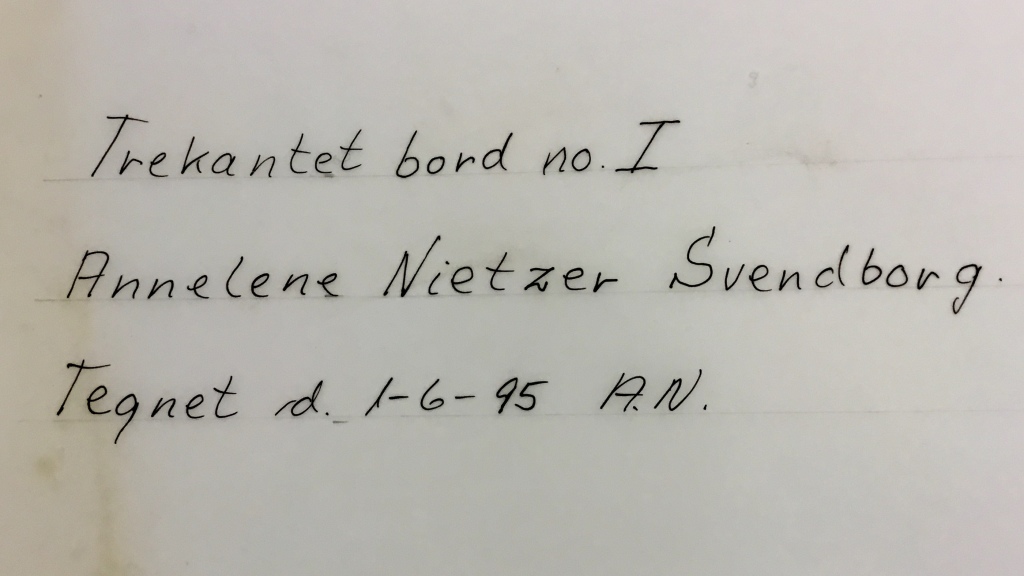 Trekantet bord no. I
Annelene Nietzer Svendborg.
Tegnet d. 1-6-95 A.N.